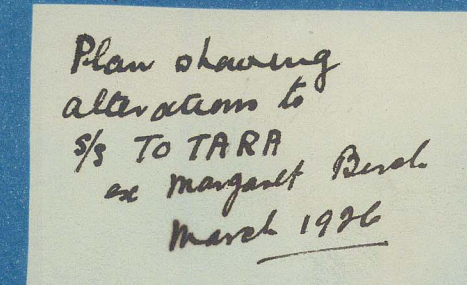 Plan showing
alterations to
S/S TOTARA
ex Margaret Birch
March 1926